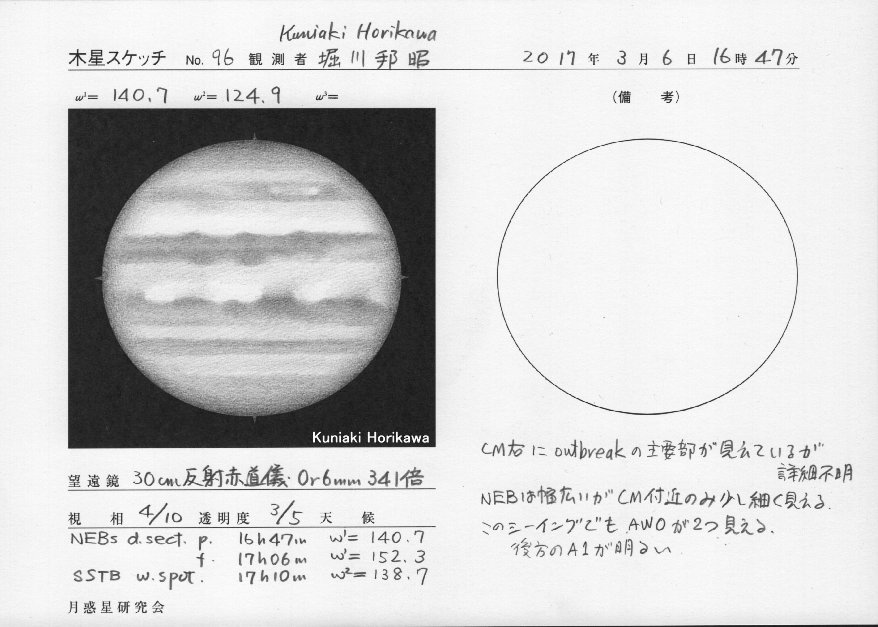 Kuniaki Horikawa
木星スケッチ No. 96 観測者 堀川邦昭 2017年3月6日16時47分
ω¹= 140.7 ω²= 124.9 ω³=
(備 考)
Kuniaki Horikawa
CM右にoutbreakの主要部が見えているが
詳細不明
NEBは幅広いがCM付近のみ少し細く見える.
このシーイングでも AWOが2つ見える.
後方のA1が明るい
望遠鏡 30cm反射赤道儀 Or6mm 341倍
視 相 4/10 透明度 3/5 天 候
NEBs d.sect. p. 16h47m ω¹= 140.7
f. 17h06m ω¹= 152.3
SSTB w.spot. 17h10m ω²= 138.7
月惑星研究会